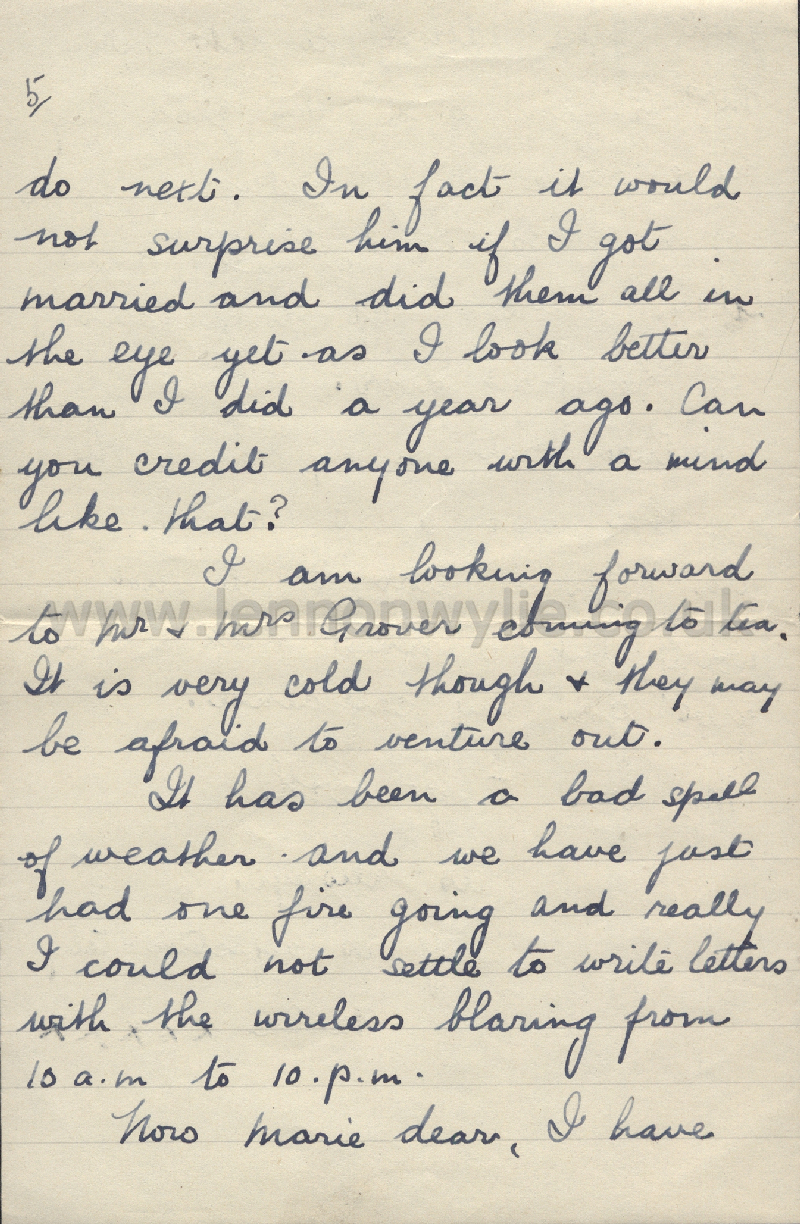 5/
do next. In fact it would
not surprise him if I got
married and did them all in
the eye yet as I look better
than I did a year ago. Can
you credit anyone with a mind
like that?
I am looking forward
www.lennonwylie.co.uk
to Mr & Mrs Grover coming to tea.
It is very cold though & they may
be afraid to venture out.
It has been a bad spell
of weather and we have just
had one fire going and really
I could not settle to write letters
with the wireless blaring from
10 a.m to 10.p.m.
Now Marie dear, I have